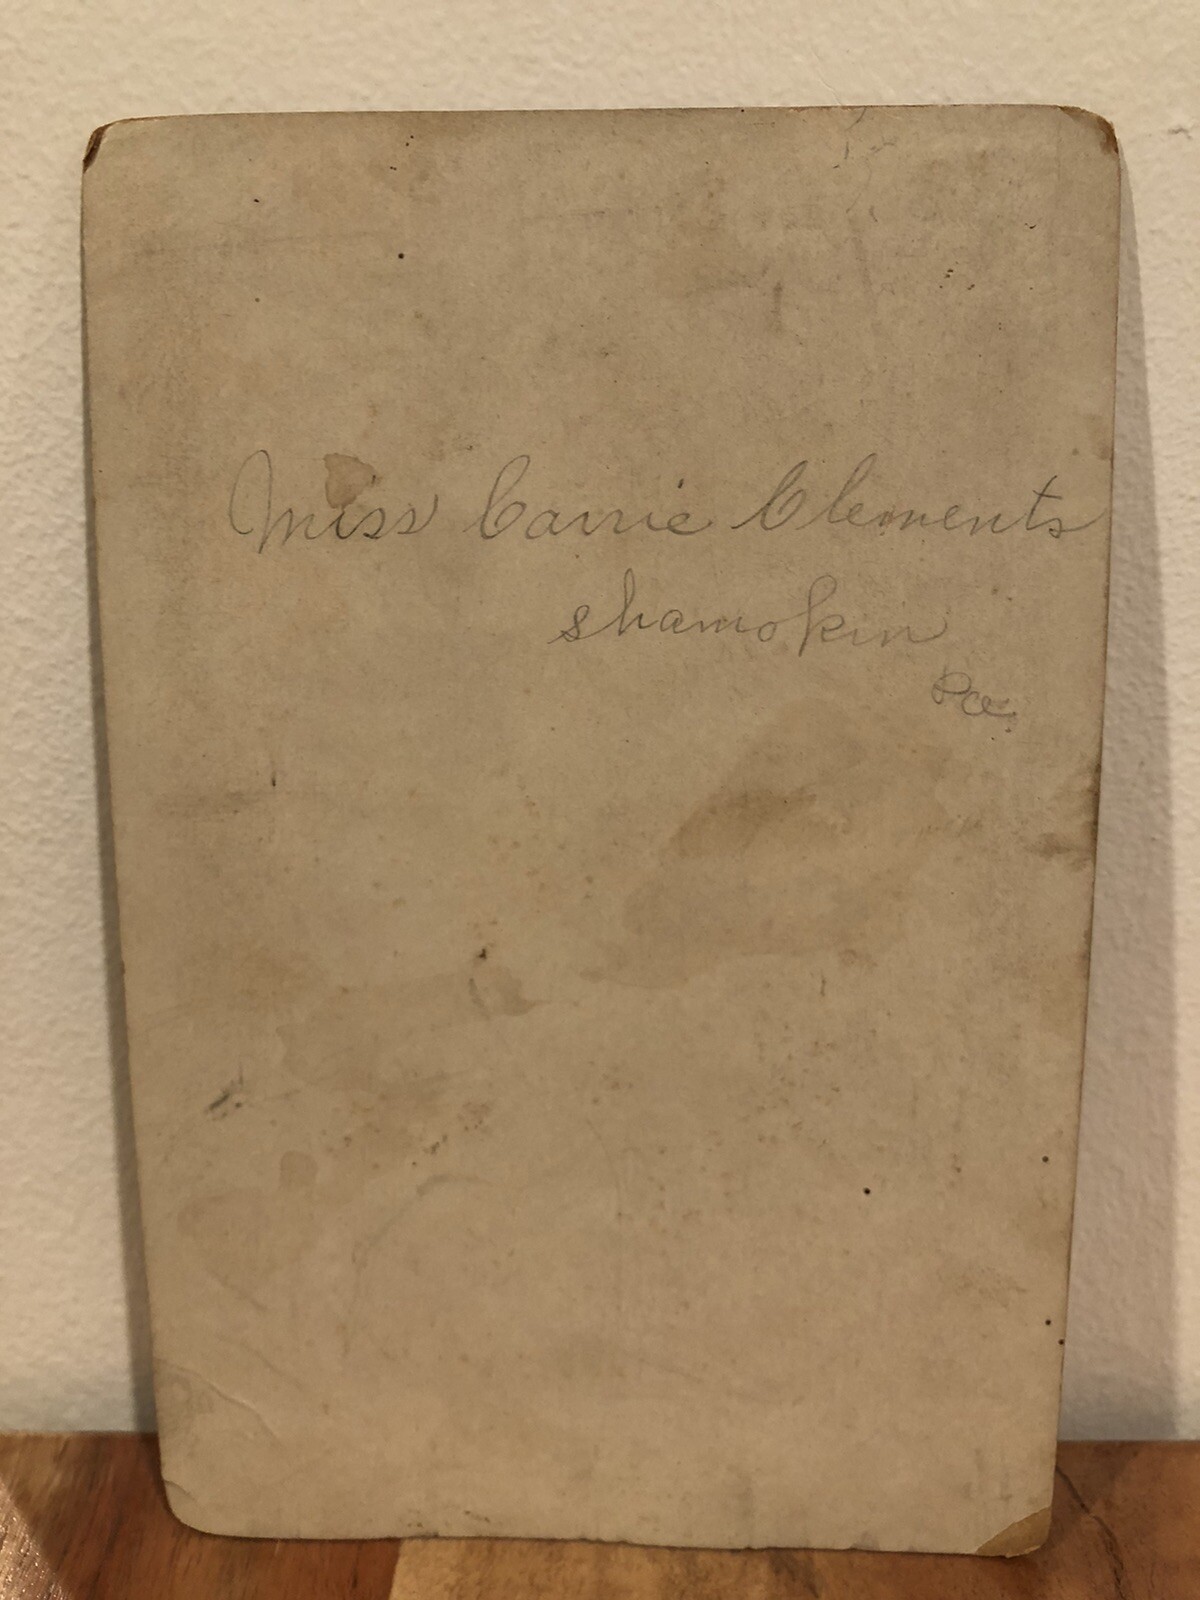 Miss Carrie Clements
shamokin
Pa.